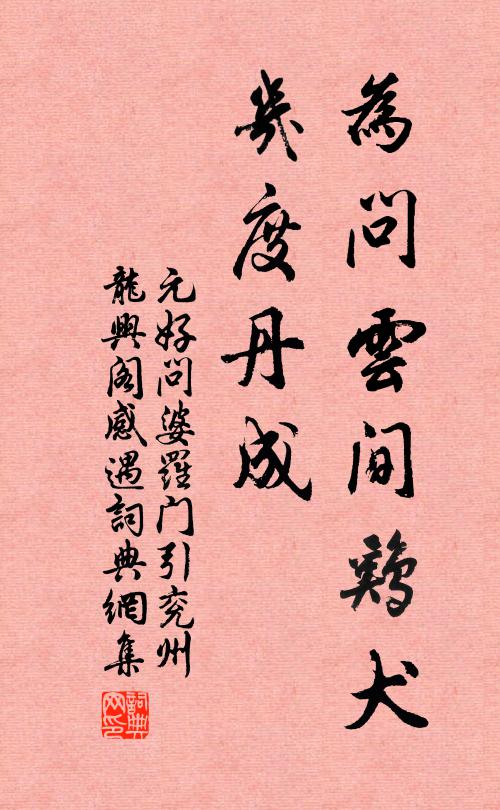 為問雲间鷄犬
幾度丹成
元好问婆羅门引兖州
龍興阁感遇詞典網集
詞典网印